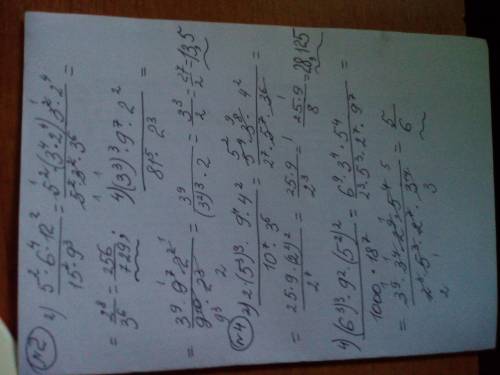 №2
2) 5² · 6⁴ · 12² / 15² · 9³ = 5² (3·2)⁴ · 3² · 2⁴ / 5² · 3² · 3⁶ =
= 2⁸ / 3⁶ = 256 / 729;
4) (3³)³ · 9⁷ · 2² / 81⁵ · 2³ =
= 3⁹ · 9⁷ · 2² / 9¹⁰ · 2³ = 3⁹ / (3²)³ · 2 = 3³ / 2 = 27 / 2 = 13,5
№4
2) 2 · (5³)³ · 9⁴ · 4² / 10⁷ · 3⁶ = 5⁹ · 3⁸ · 4² / 2⁷ · 5⁷ · 3⁶ =
= 25 · 9 · (2²)² / 2⁷ = 25 · 9 / 2³ = 25 · 9 / 8 = 28,125
4) (6³)³ · 9² · (5²)² / 1000 · 18⁷ = 6⁹ · 3⁴ · 5⁴ / 2³ · 5³ · 2⁷ · 9⁷ =
= 3⁹ · 3⁴ · 2⁹ · 5⁴ / 2³ · 5³ · 2⁷ · 3¹⁴ = 5 / 6